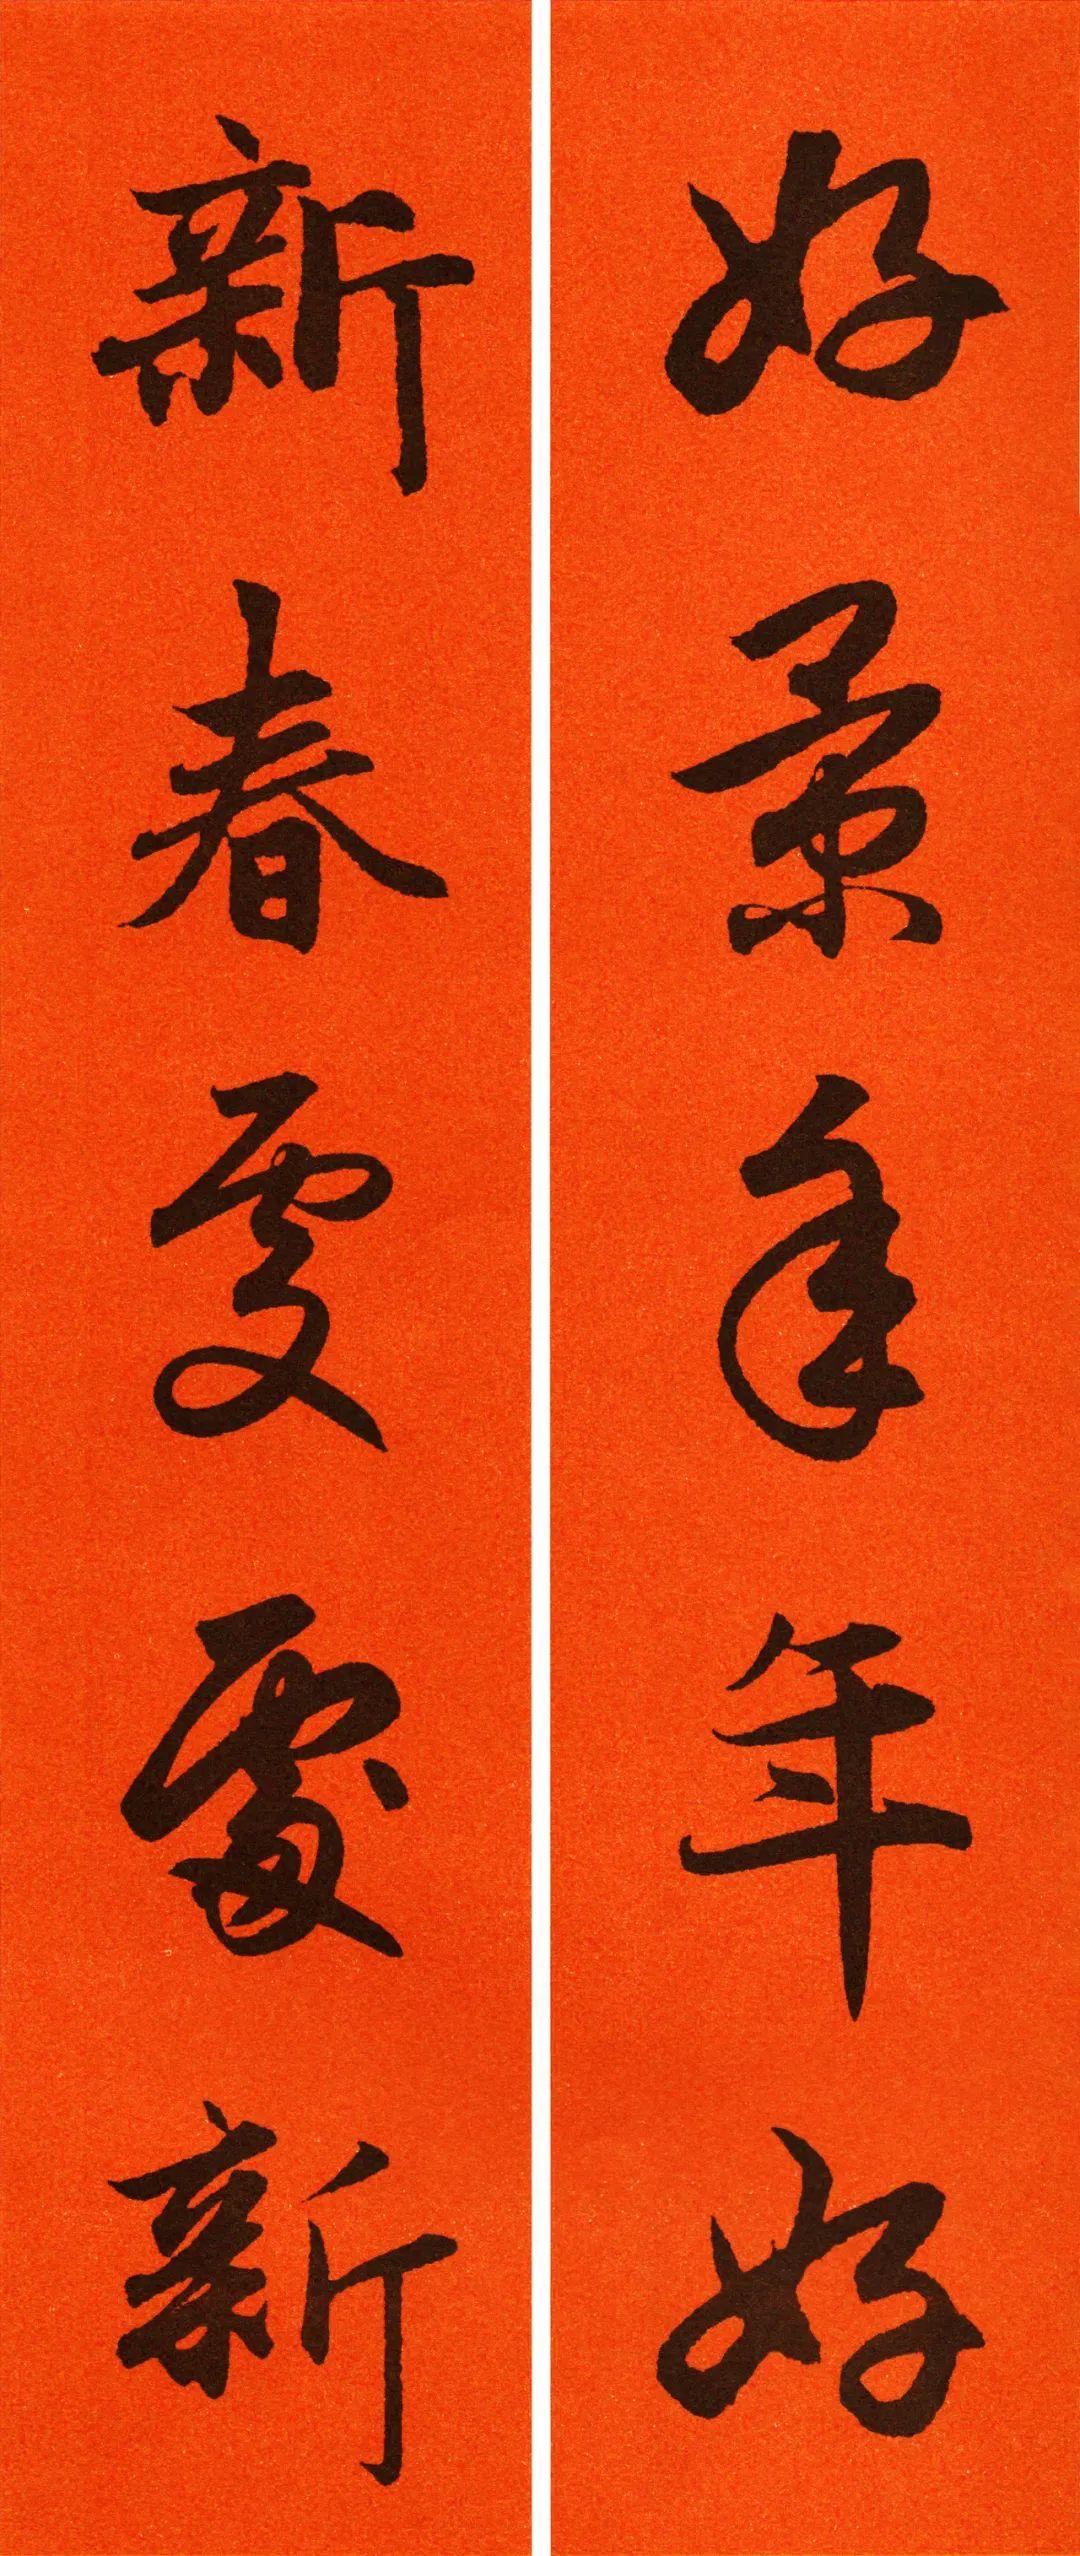 好景年年好
新春處處新